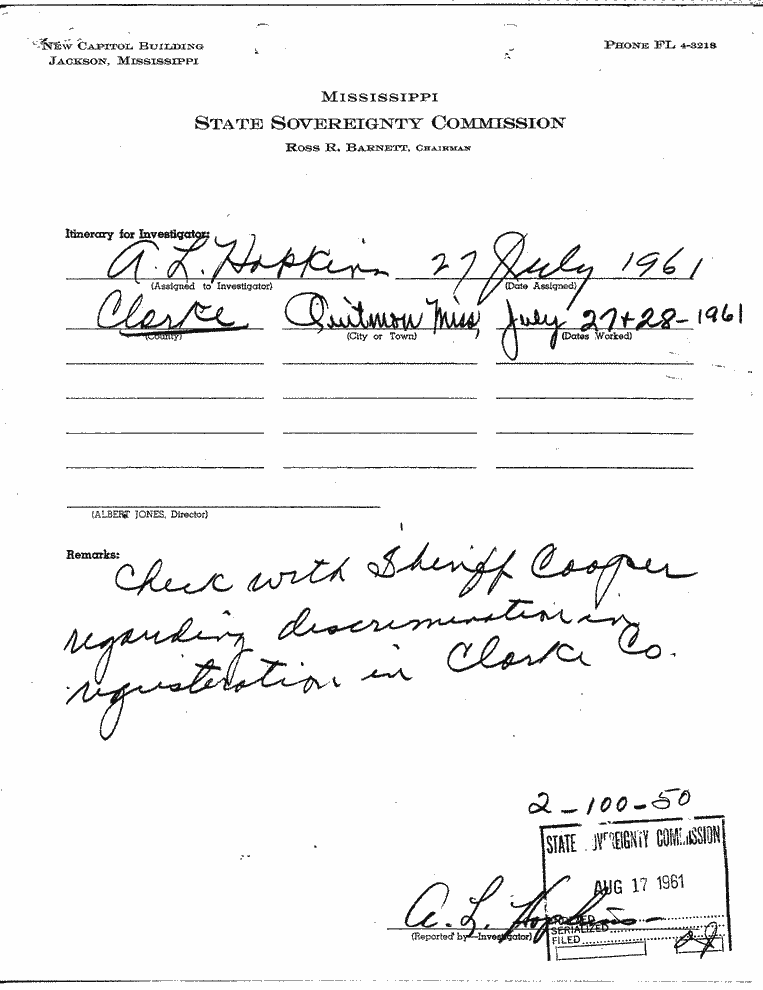 NEW CAPITOL BUILDING
JACKSON, MISSISSIPPI
PHONE FL 4-3218
MISSISSIPPI
STATE SOVEREIGNTY COMMISSION
ROSS R. BARNETT, CHAIRMAN
Itinerary for Investigator:
A. L. Hopkins 27 July 1961
(Assigned to Investigator) (Date Assigned)
Clarke Quitman Miss, July 27+28-1961
(County) (City or Town) (Dates Worked)
(ALBERT JONES, Director)
Remarks:
Check with Sheriff Cooper
regarding discrimination in
registeration in Clarke Co.
2-100-50
STATE SOVEREIGNTY COMMISSION
AUG 17 1961
A. L. Hopkins
(Reported by—Investigator)
SERIALIZED
FILED